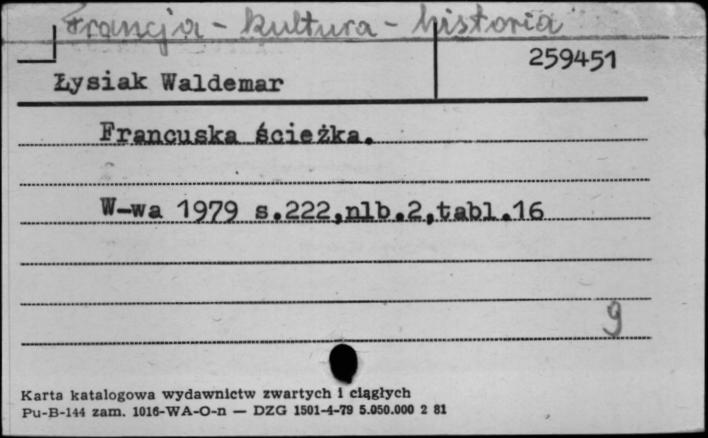 Francja - kultura - historia
259451
Łysiak Waldemar
Francuska ścieżka.
W-wa 1979 s.222,nlb.2,tabl.16
9
Karta katalogowa wydawnictw zwartych i ciągłych
Pu-B-144 zam. 1016-WA-O-n — DZG 1501-4-79 5.050.000 2 81